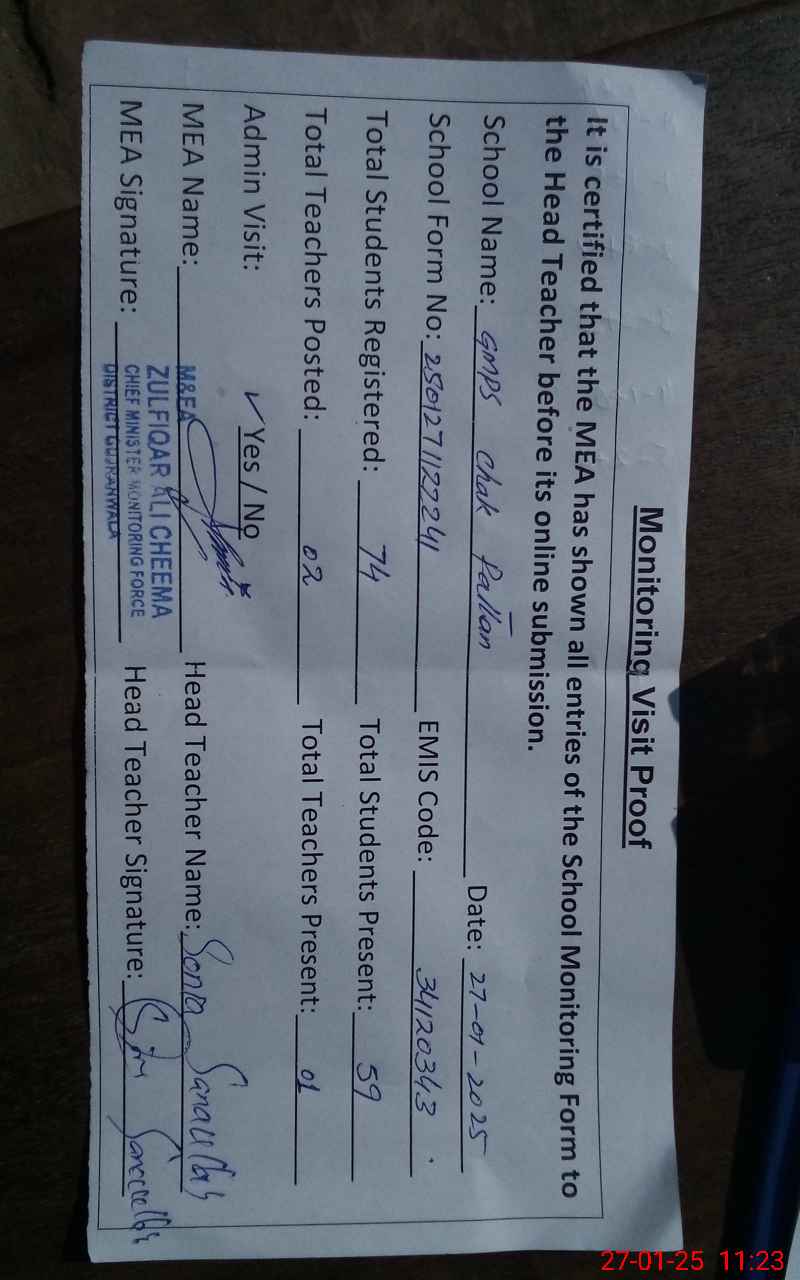 Monitoring Visit Proof
It is certified that the MEA has shown all entries of the School Monitoring Form to
the Head Teacher before its online submission.
School Name: GMPS Chak Pallan Date: 27-01-2025
School Form No: EMIS Code: 34120343
Total Students Registered: 74 Total Students Present: 59
Total Teachers Posted: 02 Total Teachers Present: 01
Admin Visit: ✓ Yes / No
MEA Name: Head Teacher Name: Sonia Sanaullah
MEA Signature: Head Teacher Signature: Sanaullah
M&EA
ZULFIQAR ALI CHEEMA
CHIEF MINISTER MONITORING FORCE
DISTRICT GUJRANWALA
27-01-25 11:23